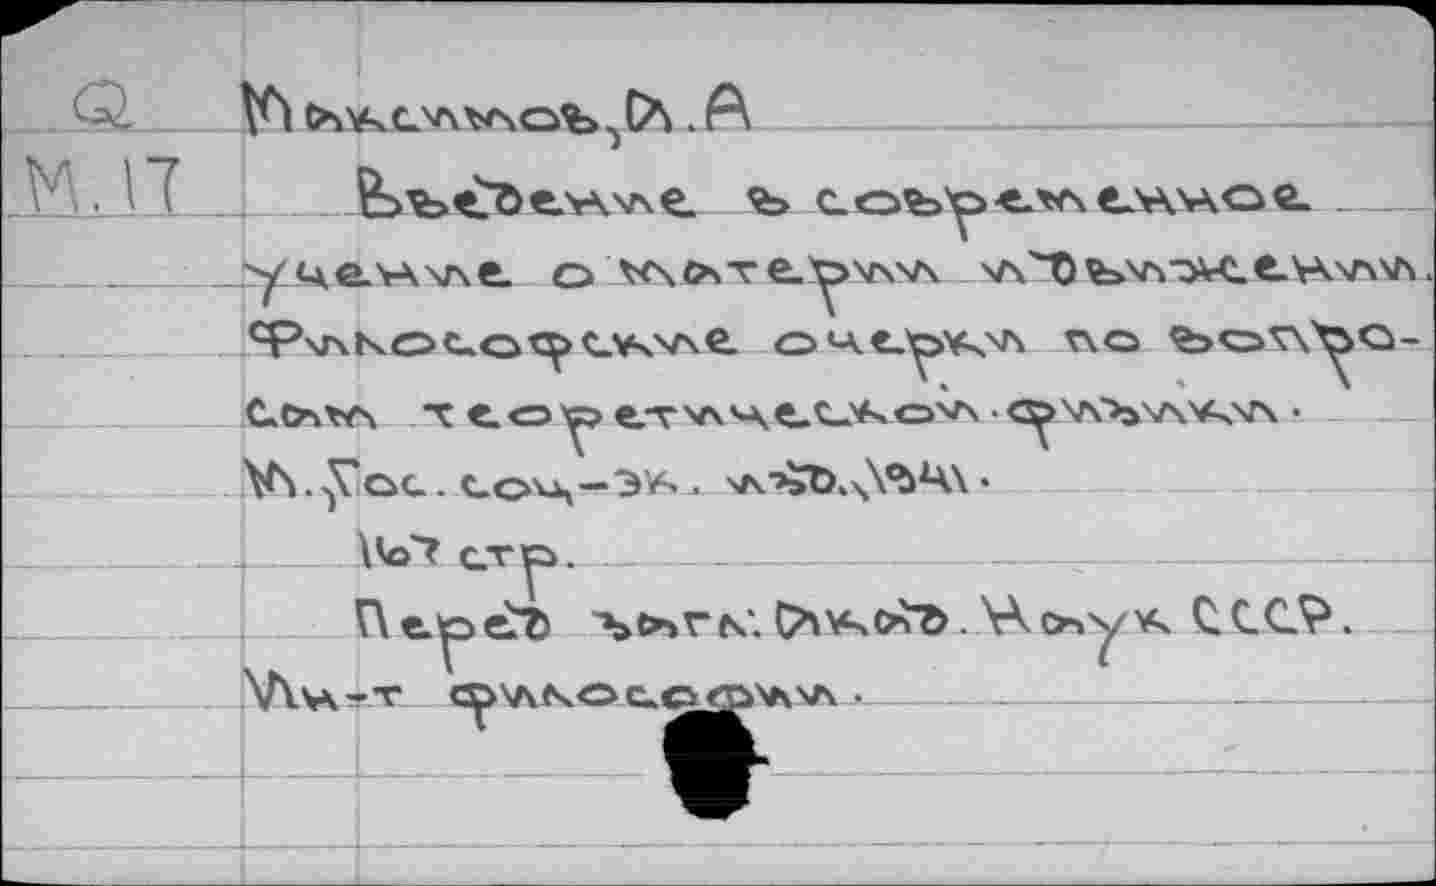 Q Максимов, А. А
М. 17 Введение в современное
учение о материи и движении.
Философские очерки по вопро-
сам теоретической физики.
М. Гос. соц-эк. изд., 1941.
перед загл: Акад. Наук СССР.
Ин-т философии.